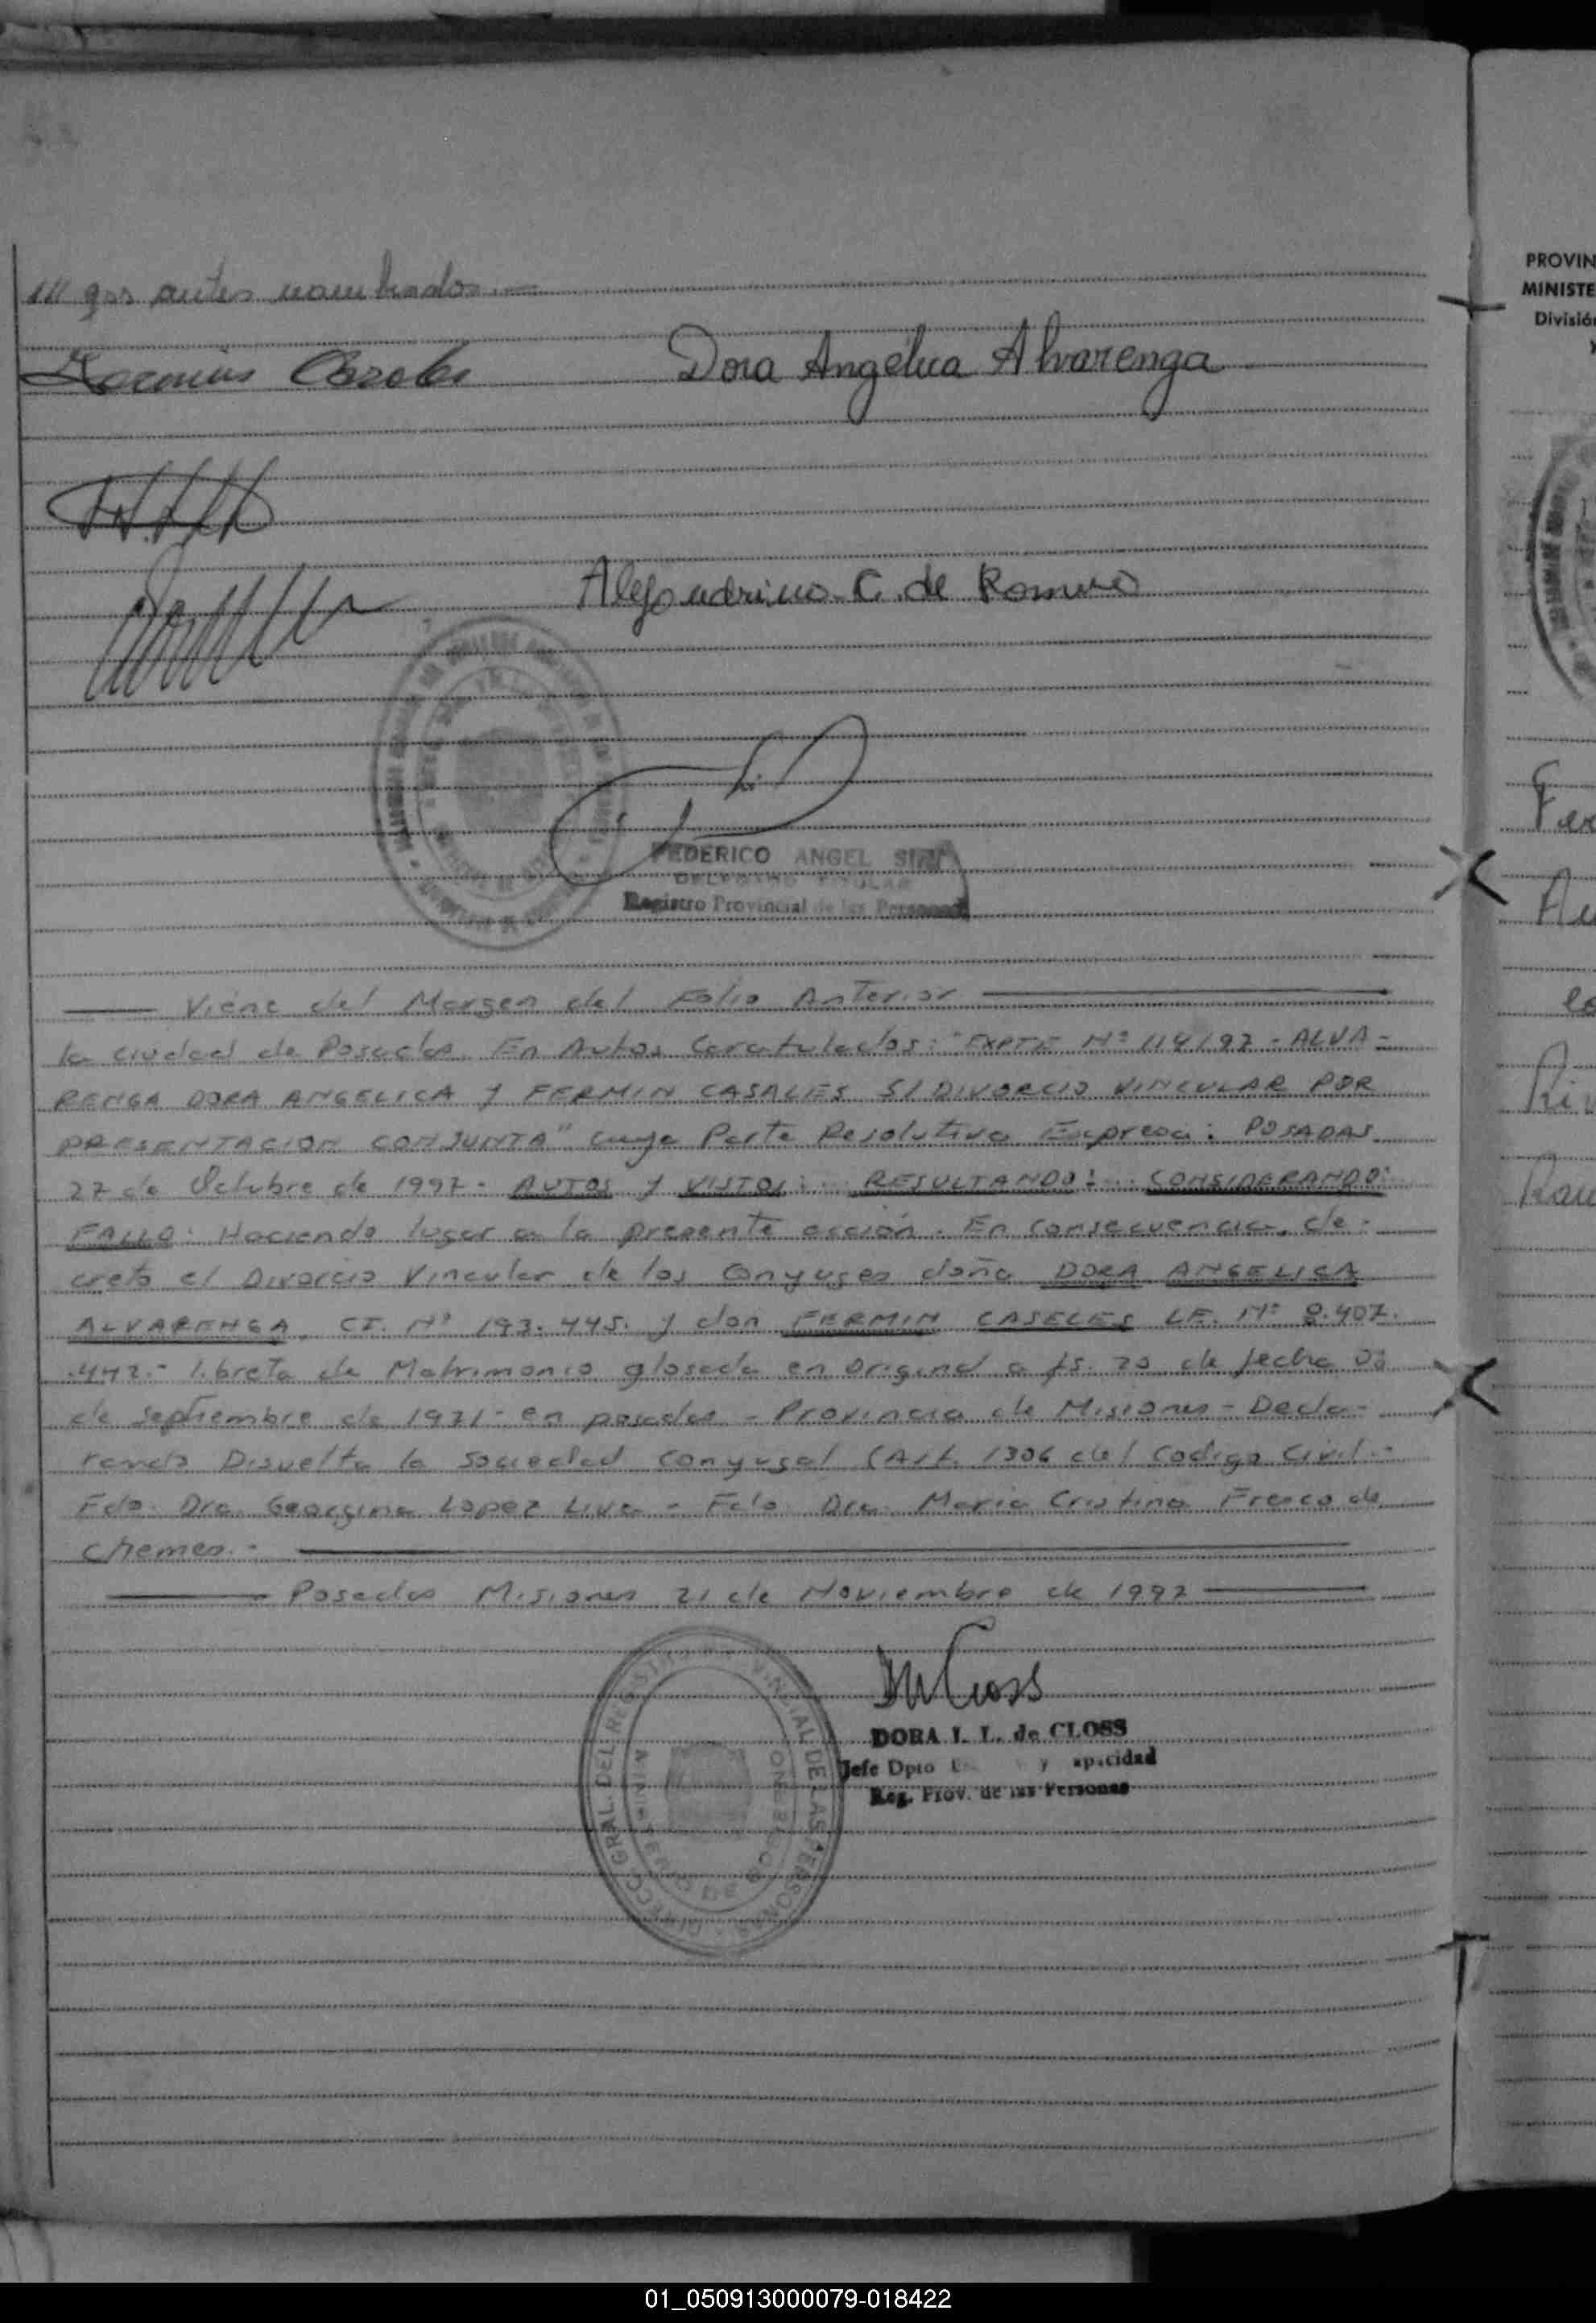 /// gos antes nombrados.—
Fermin Casales
Dora Angélica Alvarenga
Alejandrina C. de Romero
FEDERICO ANGEL
DELEGADO TITULAR
Registro Provincial de las Personas
Viene del Margen del Folio Anterior
la ciudad de Posadas. En Autos Caratulados: "EXPTE Nº 114/97 - ALVA-
RENGA DORA ANGELICA y FERMIN CASALES S/DIVORCIO VINCULAR POR
PRESENTACION CONJUNTA" cuya Parte Resolutiva Expresa: POSADAS
27 de Octubre de 1997.- AUTOS y VISTOS:.. RESULTANDO:.. CONSIDERANDO:
FALLO: Haciendo lugar a la presente acción. En consecuencia, de-
creto el Divorcio Vincular de los Conyuges doña DORA ANGELICA
ALVARENGA, CI. Nº 193.445. y don FERMIN CASELES LE. Nº 8.407.
.442.- libreta de Matrimonio glosada en original a fs. 20 de fecha
de septiembre de 1971- en posadas - Provincia de Misiones - Decla-
rando Disuelta la Sociedad Conyugal (Art. 1306 del Codigo Civil.-
Fdo. Dra. Georgina Lopez Liva - Fdo. Dra. Maria Cristina Fresco de
Chemes.-
Posadas Misiones 21 de Noviembre de 1997
DORA I. L. de CLOSS
Jefe Dpto y apacidad
Reg. Prov. de las Personas
DIRECC. GRAL. DEL REGISTRO PROVINCIAL DE LAS PERSONAS
PROVIN
MINISTE
División
01_050913000079-018422